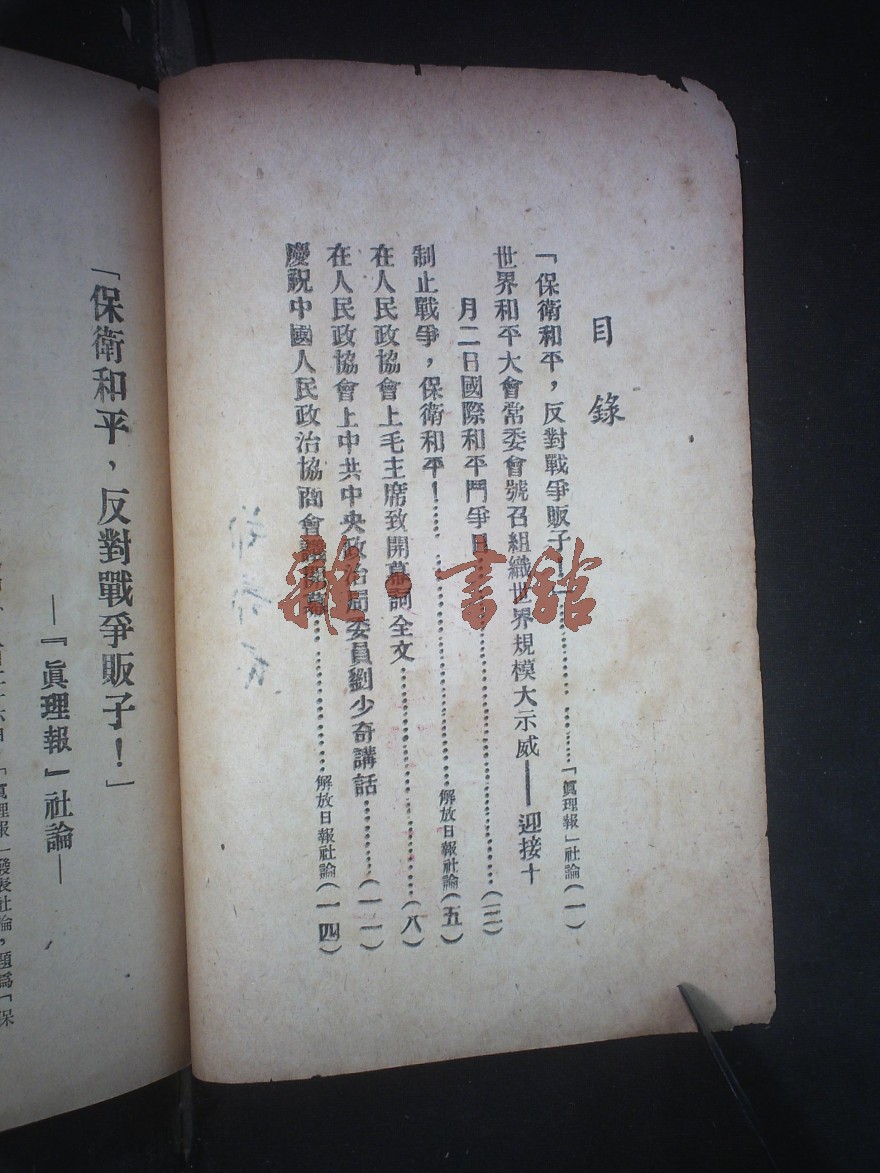 目錄
「保衛和平，反對戰爭販子！」…………「眞理報」社論（一）
世界和平大會常委會號召組織世界規模大示威——迎接十
月二日國際和平鬥爭日…………（三）
制止戰爭，保衛和平！…………解放日報社論（五）
在人民政協會上毛主席致開幕詞全文…………（八）
在人民政協會上中共中央政治局委員劉少奇講話…………（一一）
慶祝中國人民政治協商會議…………解放日報社論（一四）
雜·書舘
「保衛和平，反對戰爭販子！」
—「眞理報」社論—
「眞理報」發表社論，題爲「保